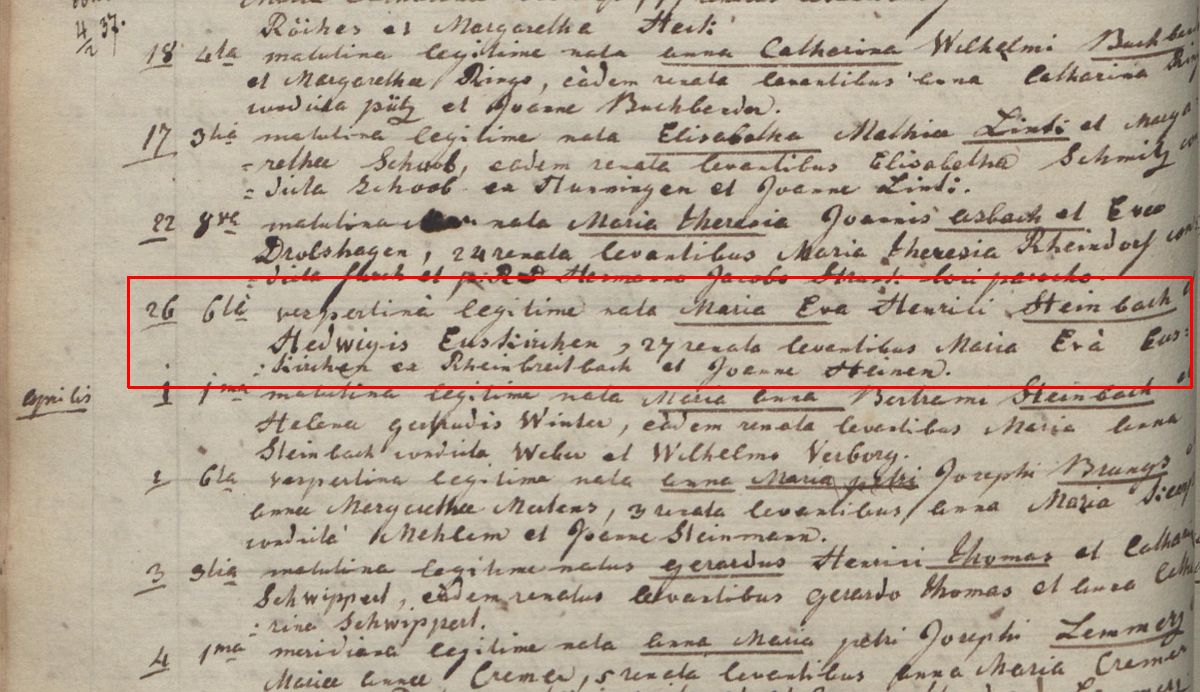 4/2 37.
Röihes et Margaretha Herti
18 4ta matutina legitime nata anna Catharina Wilhelmi Buchbe
et Margarethae Ringo, eâdem renata levantibus anna Catharina
condicta pütz et Joanne Buchbender.
17 3tia matutina legitime nata Elisabetha Mathiae Linti et Marga
retha Schoob, eadem renata levantibus Elisabetha Schmitz con
dicta Schoob ex Flunningen et Joanne Linti.
22 8va matutina nata Maria theresia Joannis asbach et Evae
Drolshagen, 24 renata levantibus Maria theresia Rheindorf con
dicta et p. R.D Hermanno Jacobo loci parocho.
26 6ta vespertinâ legitime nata Maria Eva Henrici Steinbach
Hedwigis Euskirchen, 27 renata levantibus Maria Evâ Eus=
kirchen ex Rheinbreitbach et Joanne Heinen.
aprilis 1 1ma matutina legitime nata Maria anna Bertrami Steinbach et
Helena gertrudis Winter, eâdem renata levantibus Maria anna
Steinbach condicta Weber et Wilhelmo Verborg.
2 6ta vespertina legitime nata anna Maria petri Josephi Brungs
annae Margarethae Mertens, 3 renata levantibus anna Maria
condicta Mehlem et Joanne Steinmann.
3 3tia matutina legitime natus gerardus Henrici thomas et Catha
Schwippert, eâdem renatus levantibus gerardo thomas et anna Catha
rina Schwippert.
4 1ma meridiana legitime nata anna Maria petri Josephi Lemmerz
Mariae annae Cremer, 5 renata levantibus anna Maria Cremer